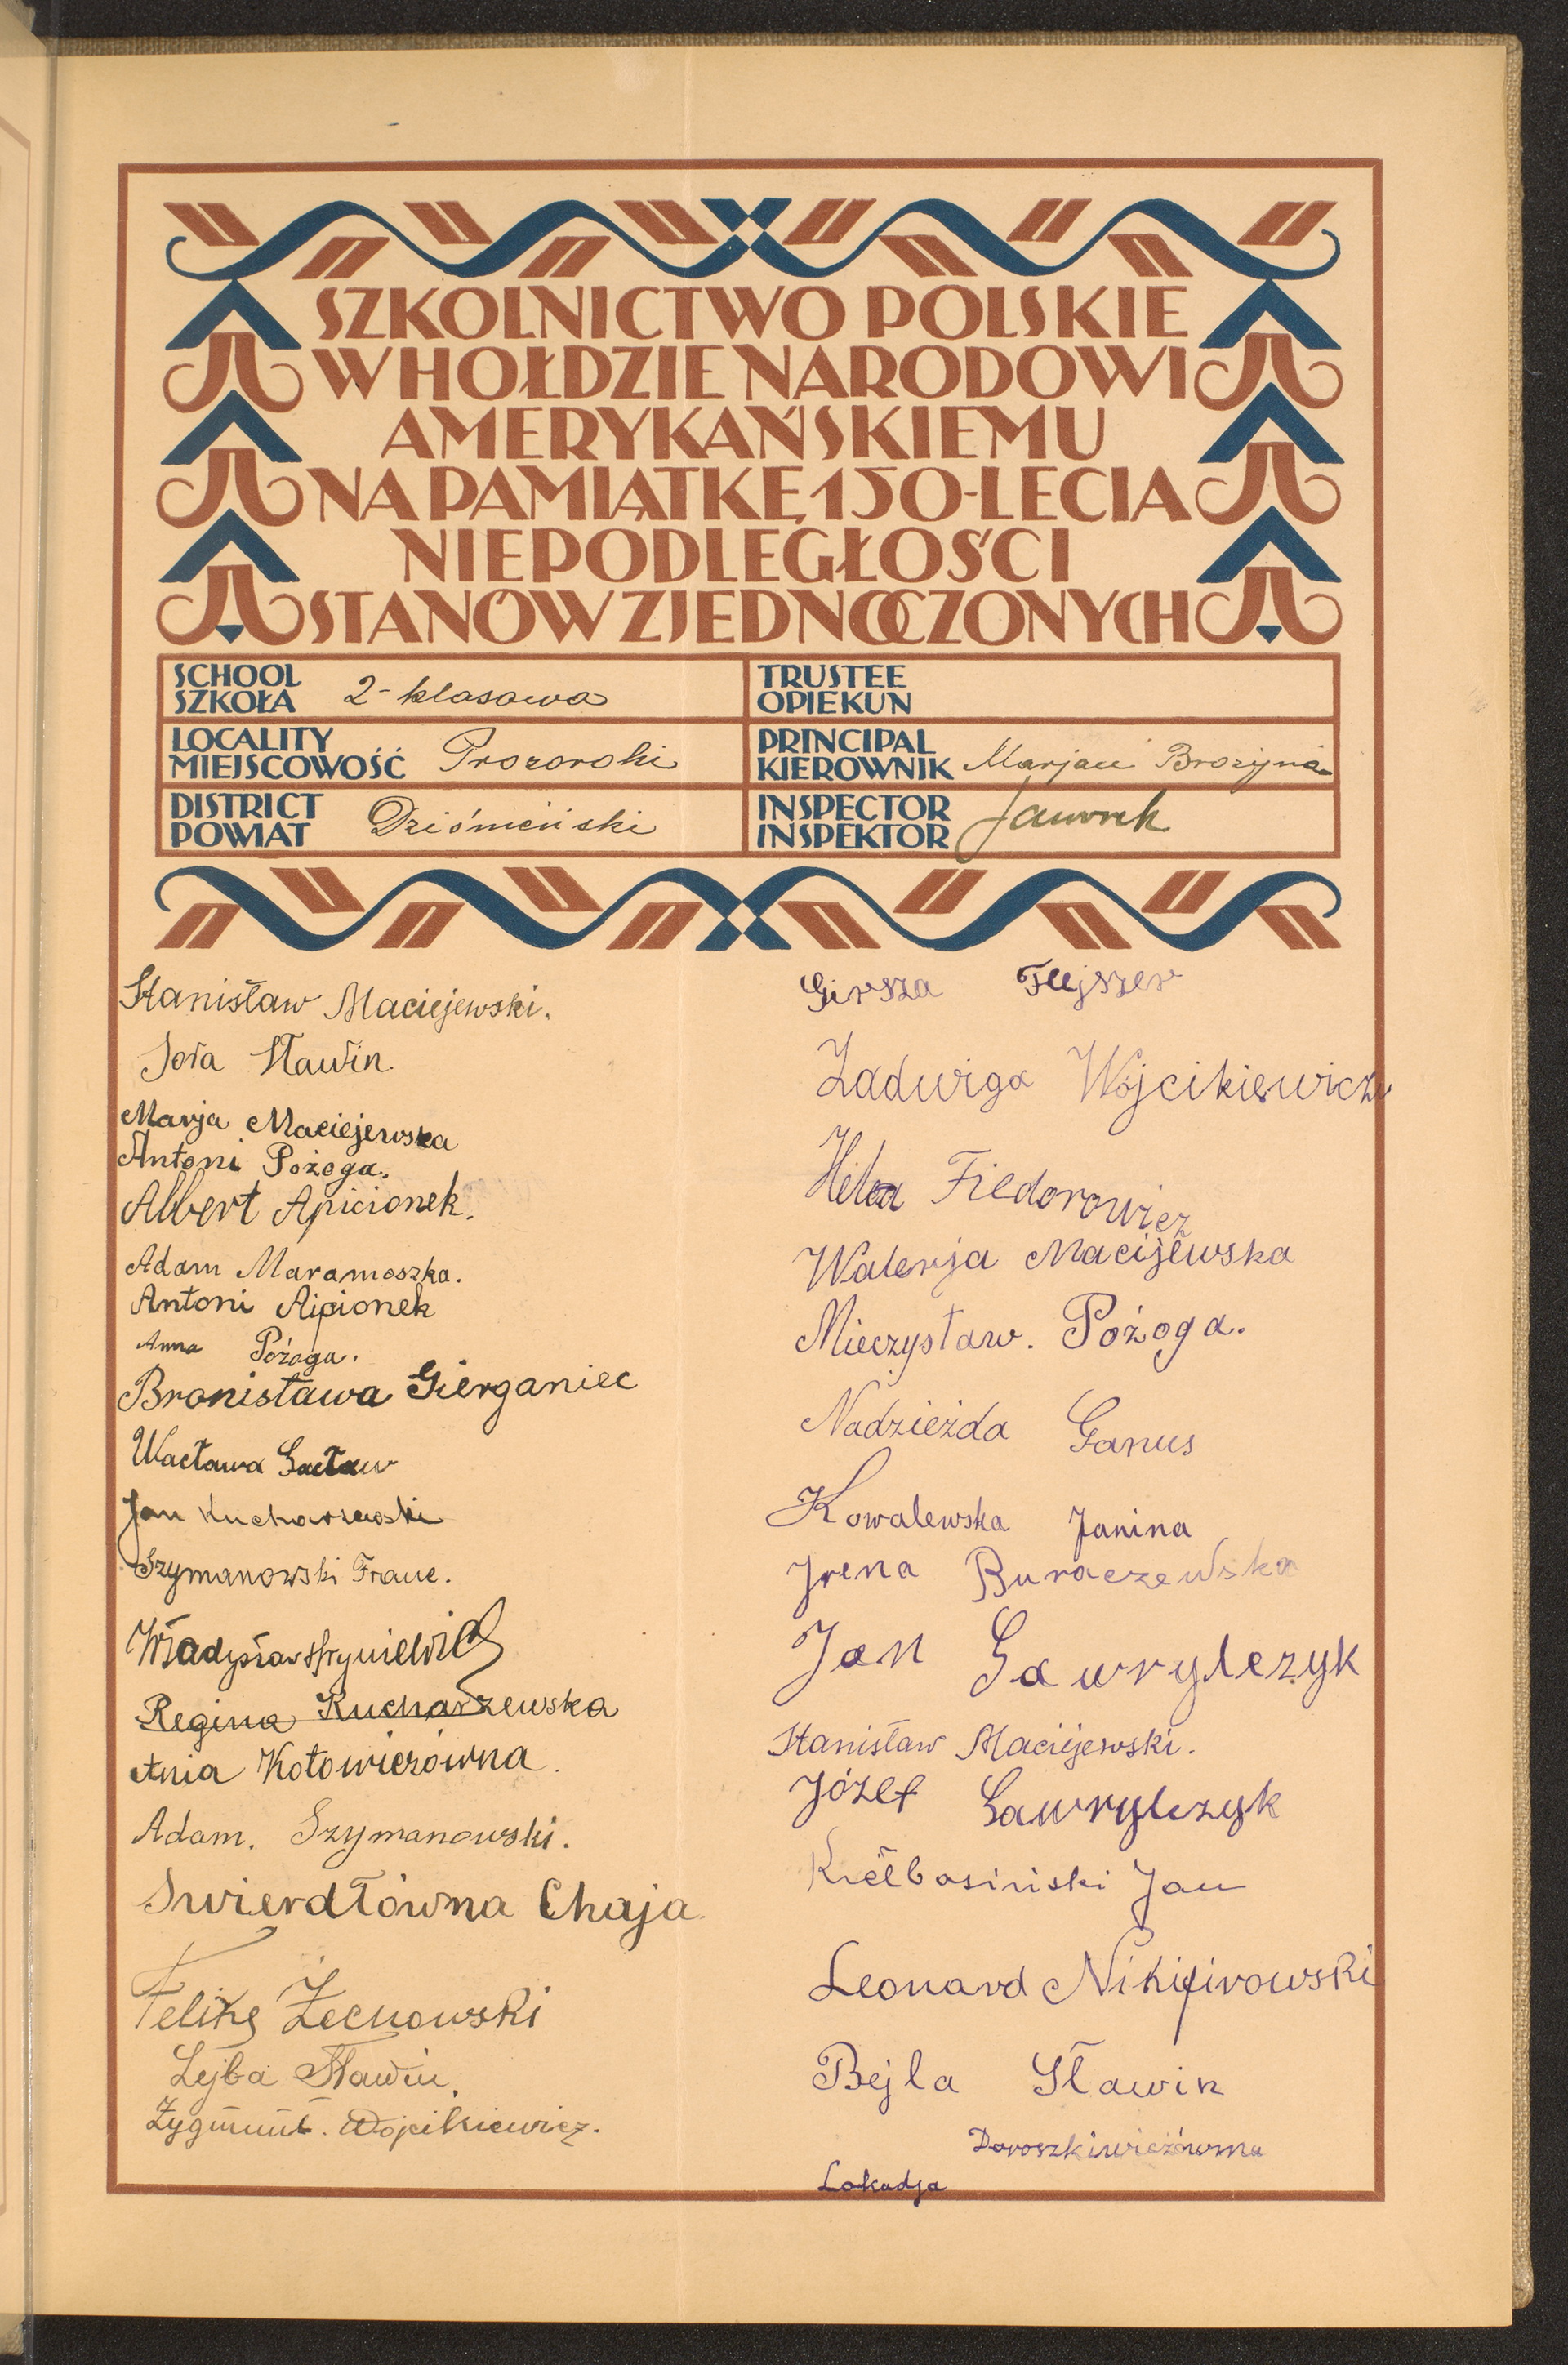 SZKOLNICTWO POLSKIE
W HOŁDZIE NARODOWI
AMERYKAŃSKIEMU
NA PAMIĄTKĘ 150-LECIA
NIEPODLEGŁOŚCI
STANÓW ZJEDNOCZONYCH
SCHOOL
SZKOŁA 2-klasowa
TRUSTEE
OPIEKUN
LOCALITY
MIEJSCOWOŚĆ Prozoroki
PRINCIPAL
KIEROWNIK Marjan Brozyna
DISTRICT
POWIAT Dziśnieński
INSPECTOR
INSPEKTOR Jaworek
Stanisław Maciejewski.
Sławin.
Marja Maciejewska
Antoni Pożoga.
Albert Apicionek.
Adam Maramoszka.
Antoni Apicionek
Anna Pożoga.
Bronisława Gierganiec
Wacława
Jan Kucharzewski
Szymanowski Franc.
Władysław Hryniewicz
Regina Kucharzewska
Ania Kotowiczówna.
Adam. Szymanowski.
Swierdłówna Chaja.
Żecnowski
Lejba Sławin.
Zygmunt. Wojcikiewicz.
Girsza Flejszer
Jadwiga Wójcikiewicz
Fiedorowicz
Walerja Macijewska
Mieczysław. Pożoga.
Nadzieżda Ganus
Kowalewska Janina
Jrena Buraczewska
Jan Gawrylczyk
Stanisław Maciejewski.
Józef Gawrylczyk
Kiełbasiński Jan
Leonard Nikifirowski
Bejla Sławin
Doroszkiewiczówna
Lokadja